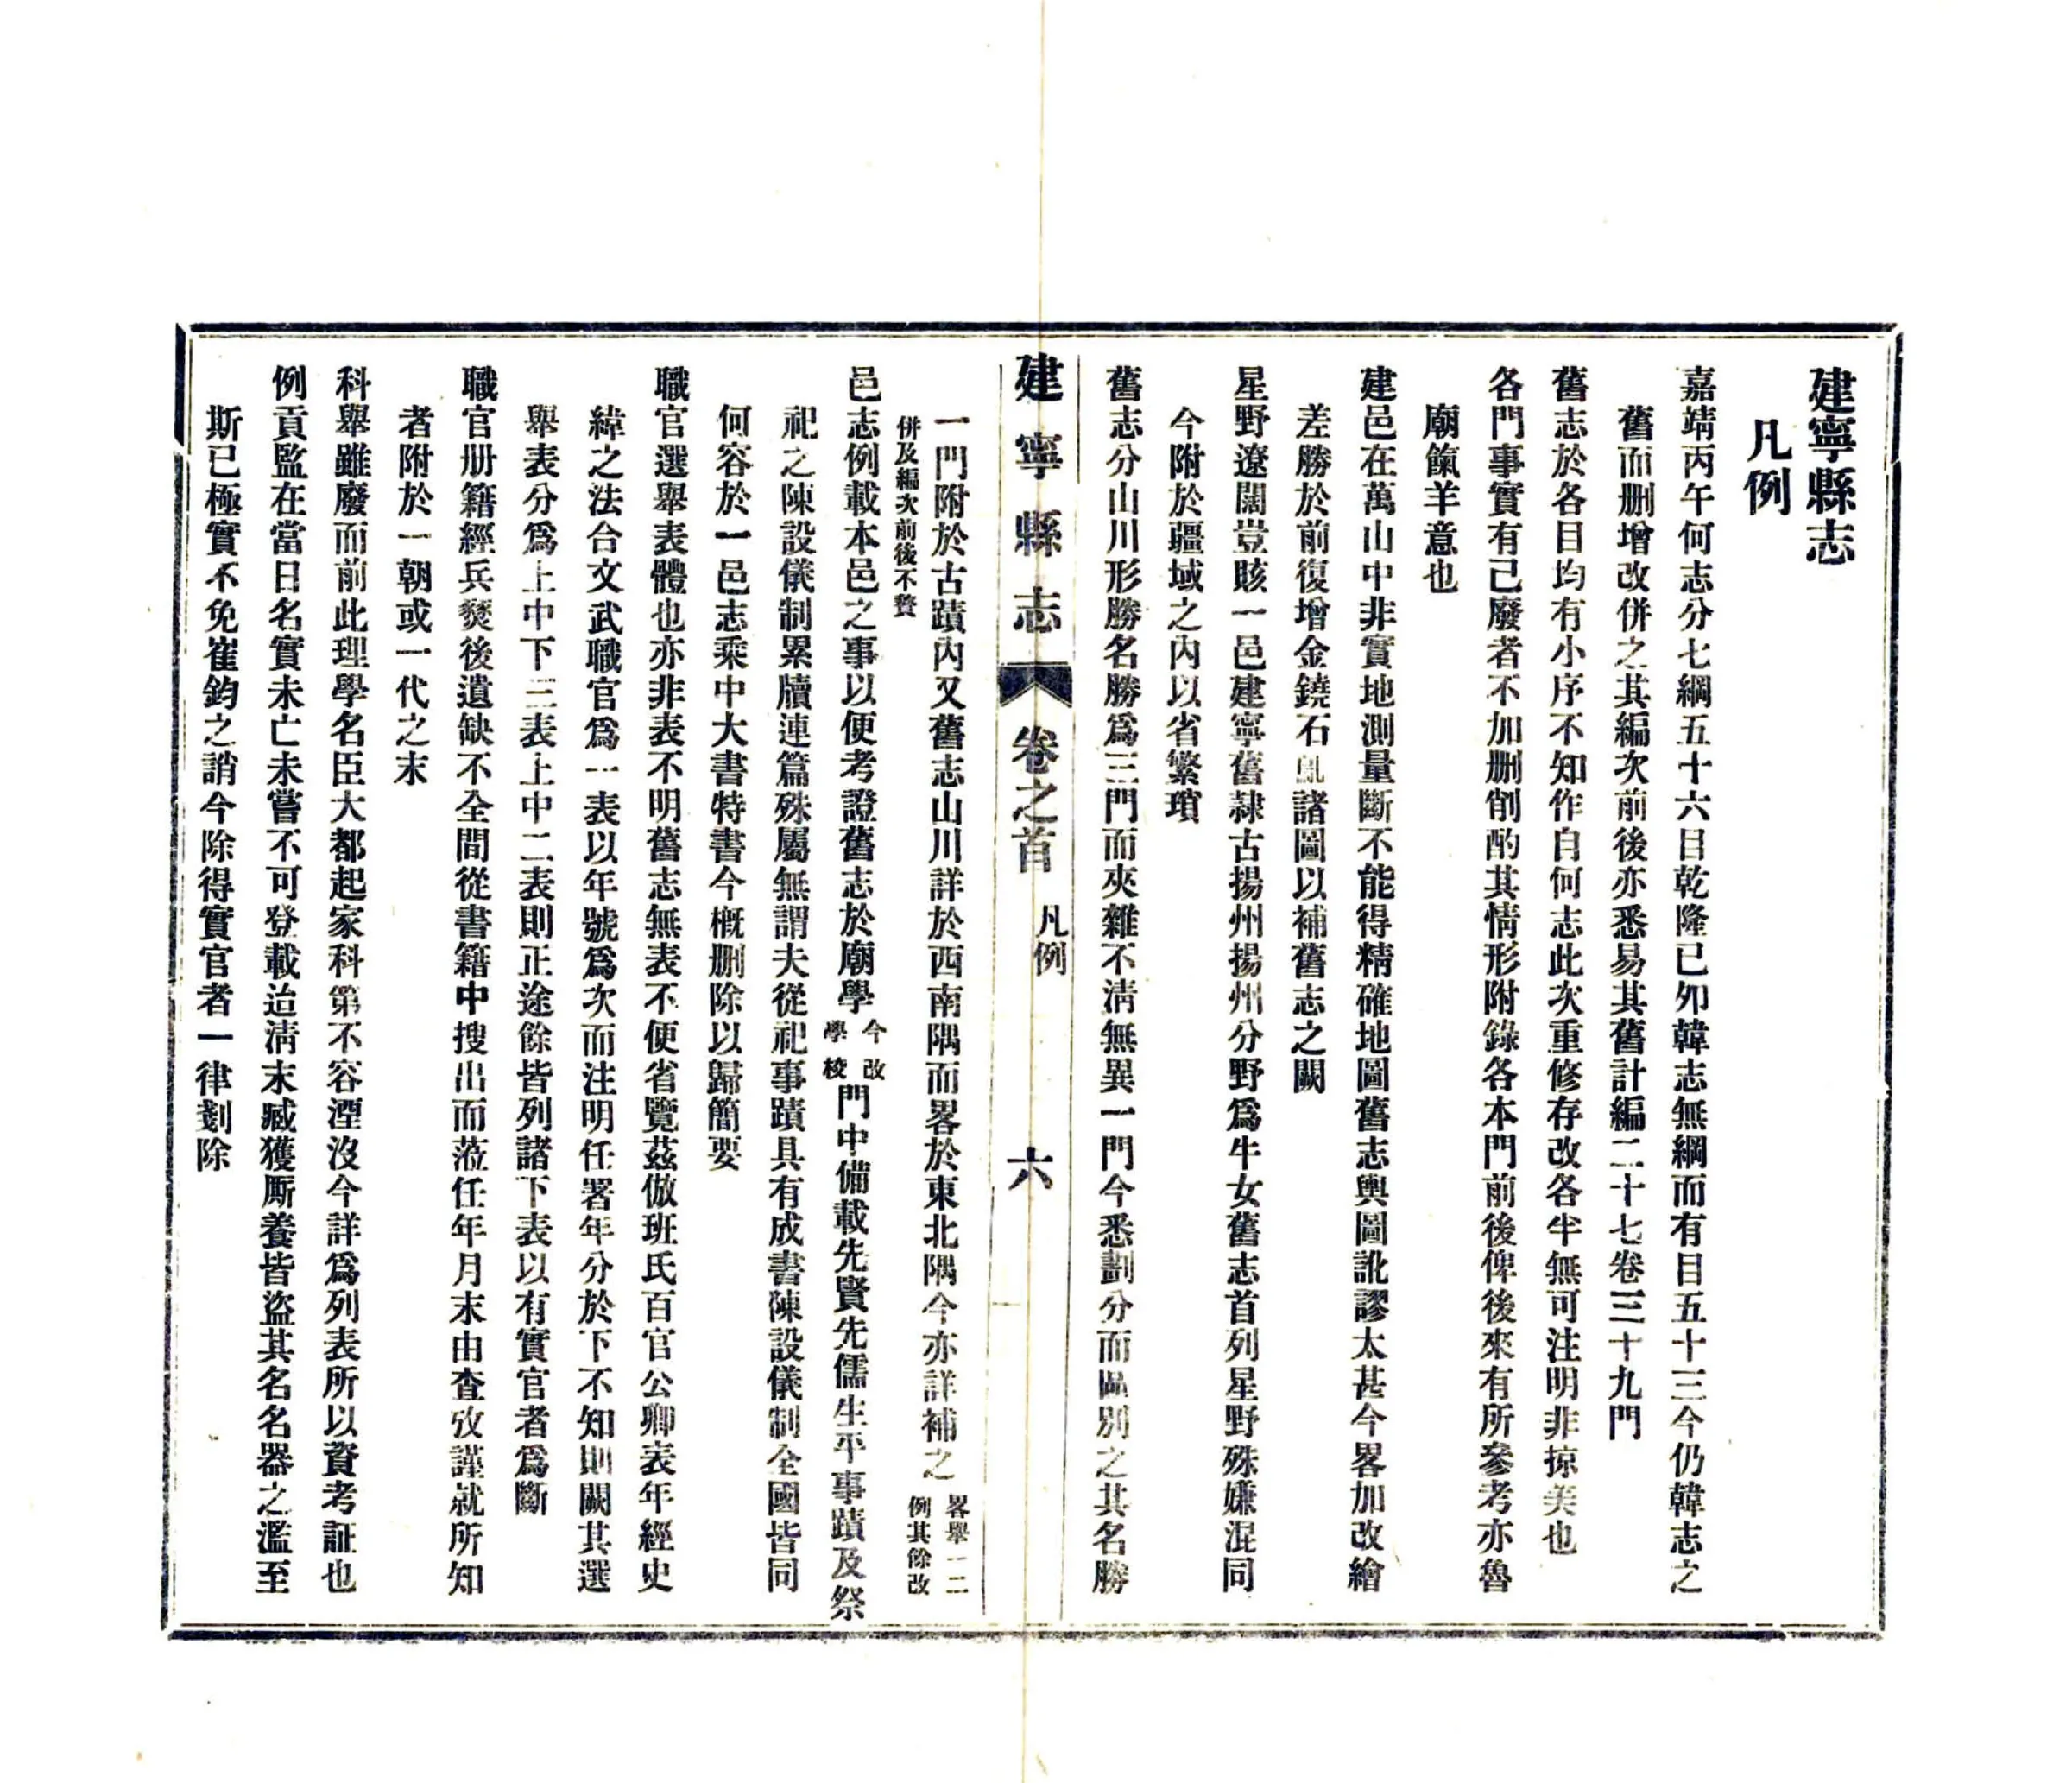 建寧縣志
凡例
嘉靖丙午何志分七綱五十六目乾隆已夘韓志無綱而有目五十三今仍韓志之
舊而刪增改併之其編次前後亦悉易其舊計編二十七卷三十九門
舊志於各目均有小序不知作自何志此次重修存改各半無可注明非掠美也
各門事實有已廢者不加刪削酌其情形附錄各本門前後俾後來有所參考亦魯
廟餼羊意也
建邑在萬山中非實地測量斷不能得精確地圖舊志輿圖訛謬太甚今畧加改繪
差勝於前復增金鐃石乢諸圖以補舊志之闕
星野遼闊豈賅一邑建寧舊隷古揚州揚州分野爲牛女舊志首列星野殊嫌混同
今附於疆域之內以省繁瑣
舊志分山川形勝名勝爲三門而夾雜不淸無異一門今悉劃分而區別之其名勝
建寧縣志 卷之首 凡例 六
一門附於古蹟內又舊志山川詳於西南隅而畧於東北隅今亦詳補之畧舉一二例其餘改
併及編次前後不贅
邑志例載本邑之事以便考證舊志於廟學今改學校門中備載先賢先儒生平事蹟及祭
祀之陳設儀制累牘連篇殊屬無謂夫從祀事蹟具有成書陳設儀制全國皆同
何容於一邑志乘中大書特書今概刪除以歸簡要
職官選舉表體也亦非表不明舊志無表不便省覽茲倣班氏百官公卿表年經史
緯之法合文武職官爲一表以年號爲次而注明任署年分於下不知則闕其選
舉表分爲上中下三表上中二表則正途餘皆列諸下表以有實官者爲斷
職官册籍經兵燹後遺缺不全間從書籍中搜出而蒞任年月末由查攷謹就所知
者附於一朝或一代之末
科舉雖廢而前此理學名臣大都起家科第不容湮沒今詳爲列表所以資考証也
例貢監在當日名實未亡未嘗不可登載迨淸末臧獲厮養皆盜其名名器之濫至
斯已極實不免崔鈞之誚今除得實官者一律剗除